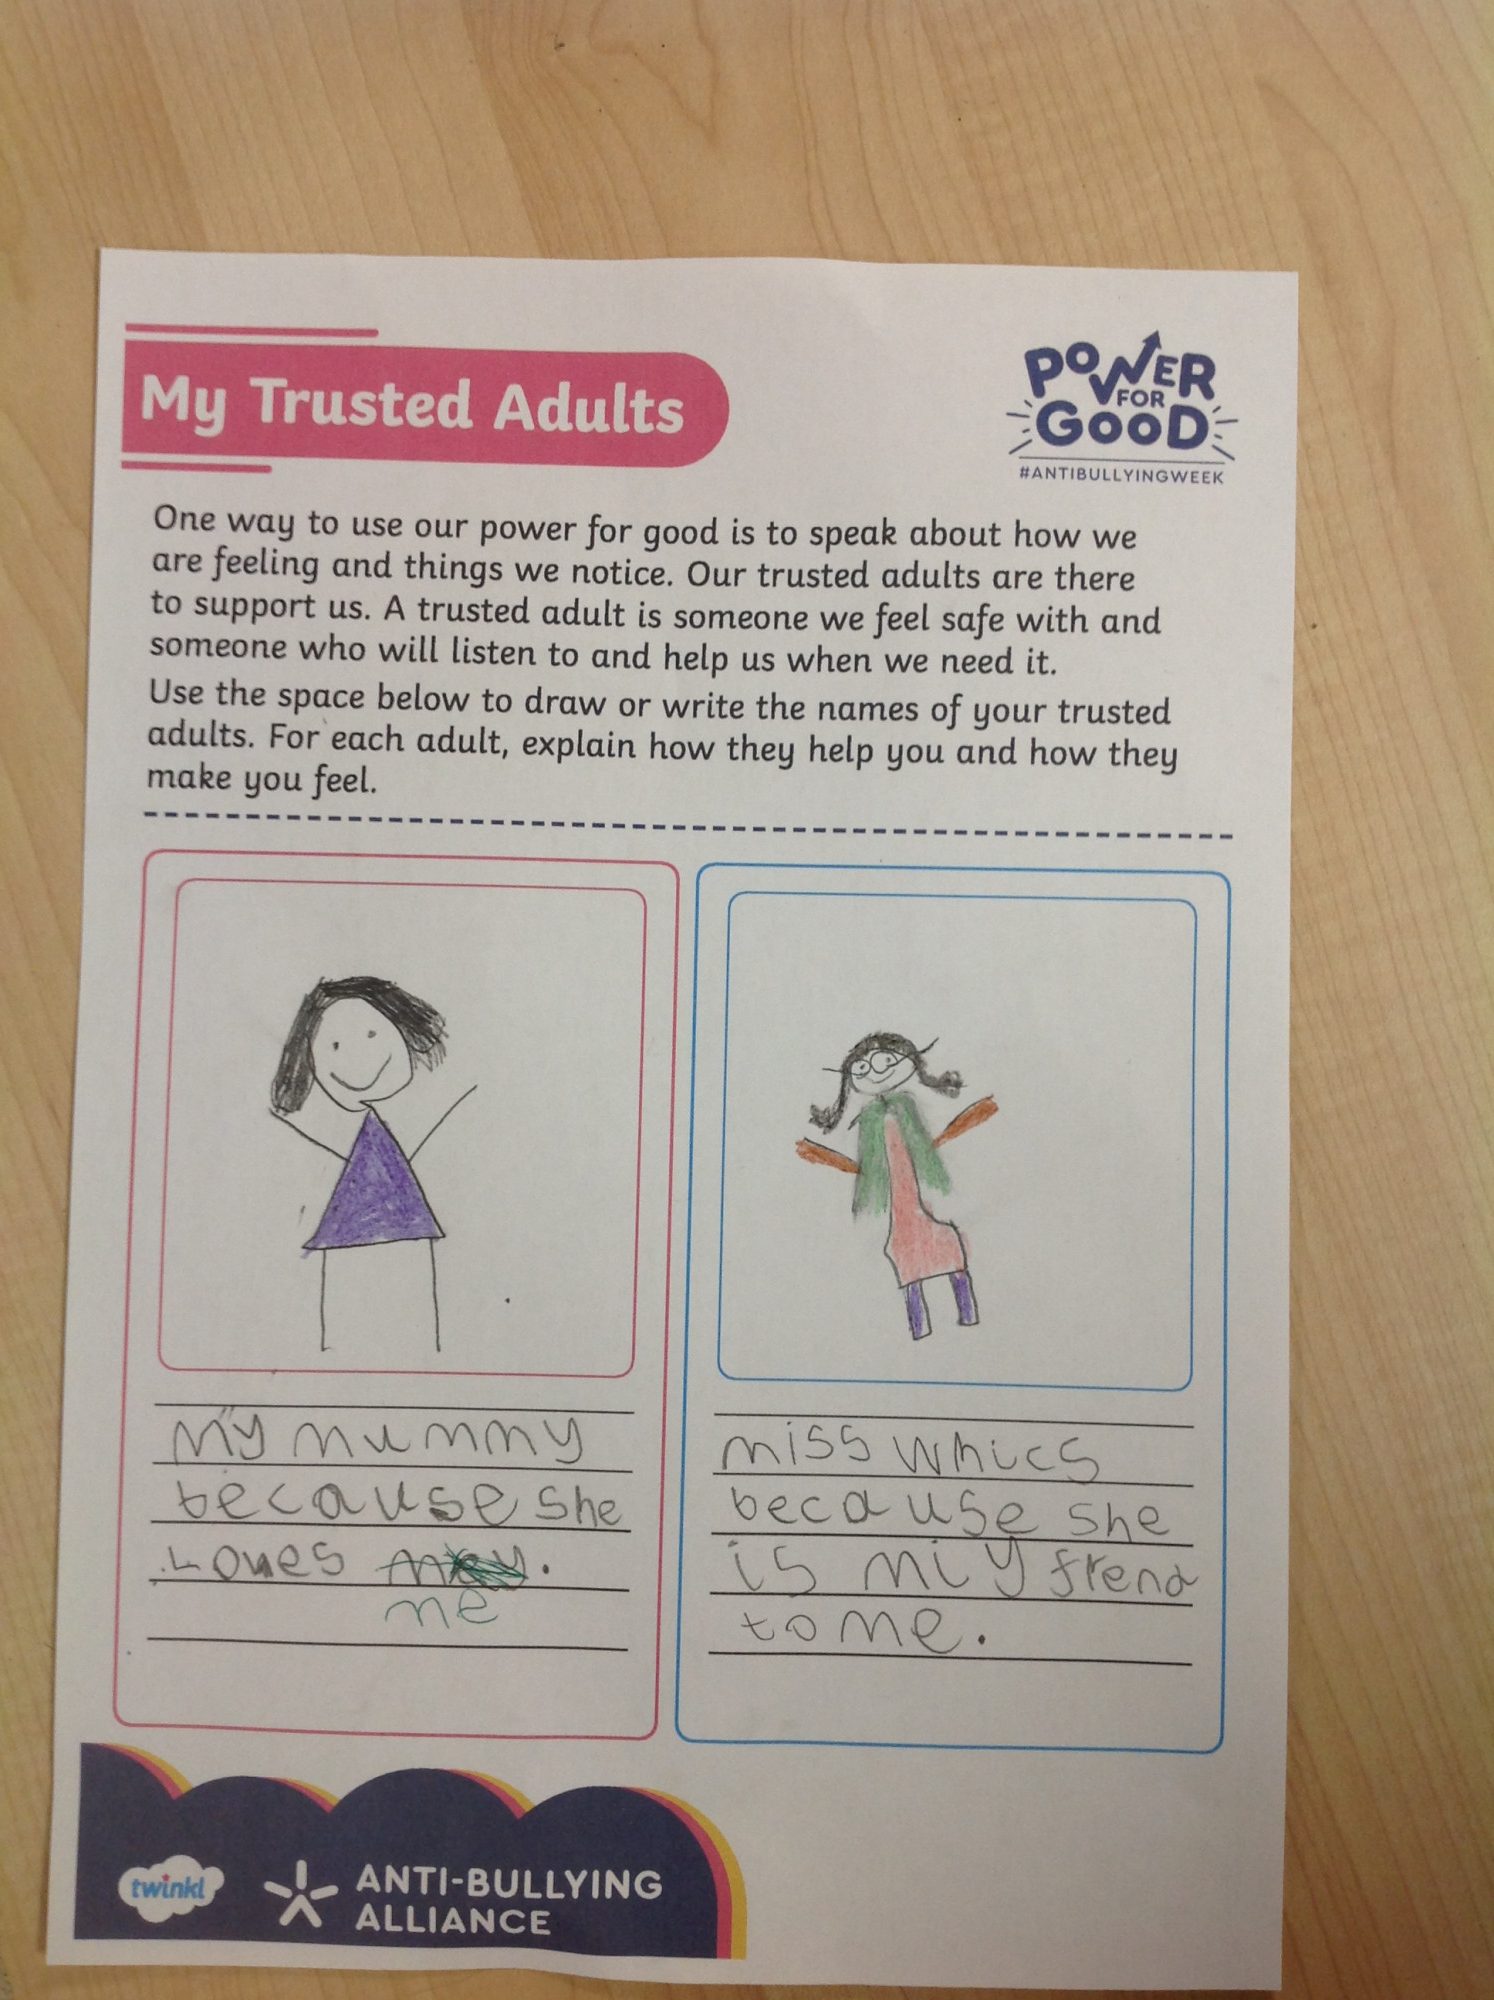 My Trusted Adults
POWER
FOR
GOOD
#ANTIBULLYINGWEEK
One way to use our power for good is to speak about how we
are feeling and things we notice. Our trusted adults are there
to support us. A trusted adult is someone we feel safe with and
someone who will listen to and help us when we need it.
Use the space below to draw or write the names of your trusted
adults. For each adult, explain how they help you and how they
make you feel.
My mummy
because she
Loves
me
miss whics
because she
is miy frend
to me.
twinkl
ANTI-BULLYING
ALLIANCE